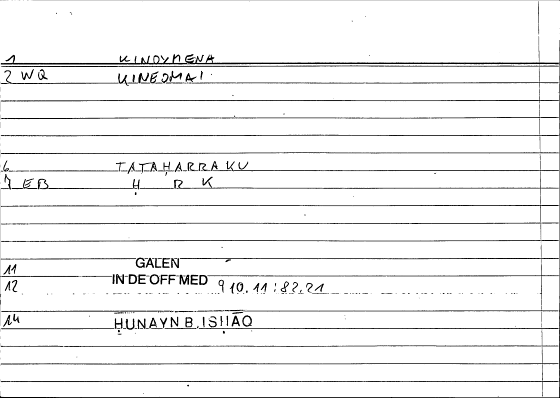 1 KINOYMENA
2 WQ KINEOMAI
6 TATAḤARRAKU
7 EB Ḥ R K
11 GALEN
12 IN DE OFF MED 9 10.11 : 82.21
14 ḤUNAYN B. ISḤĀQ